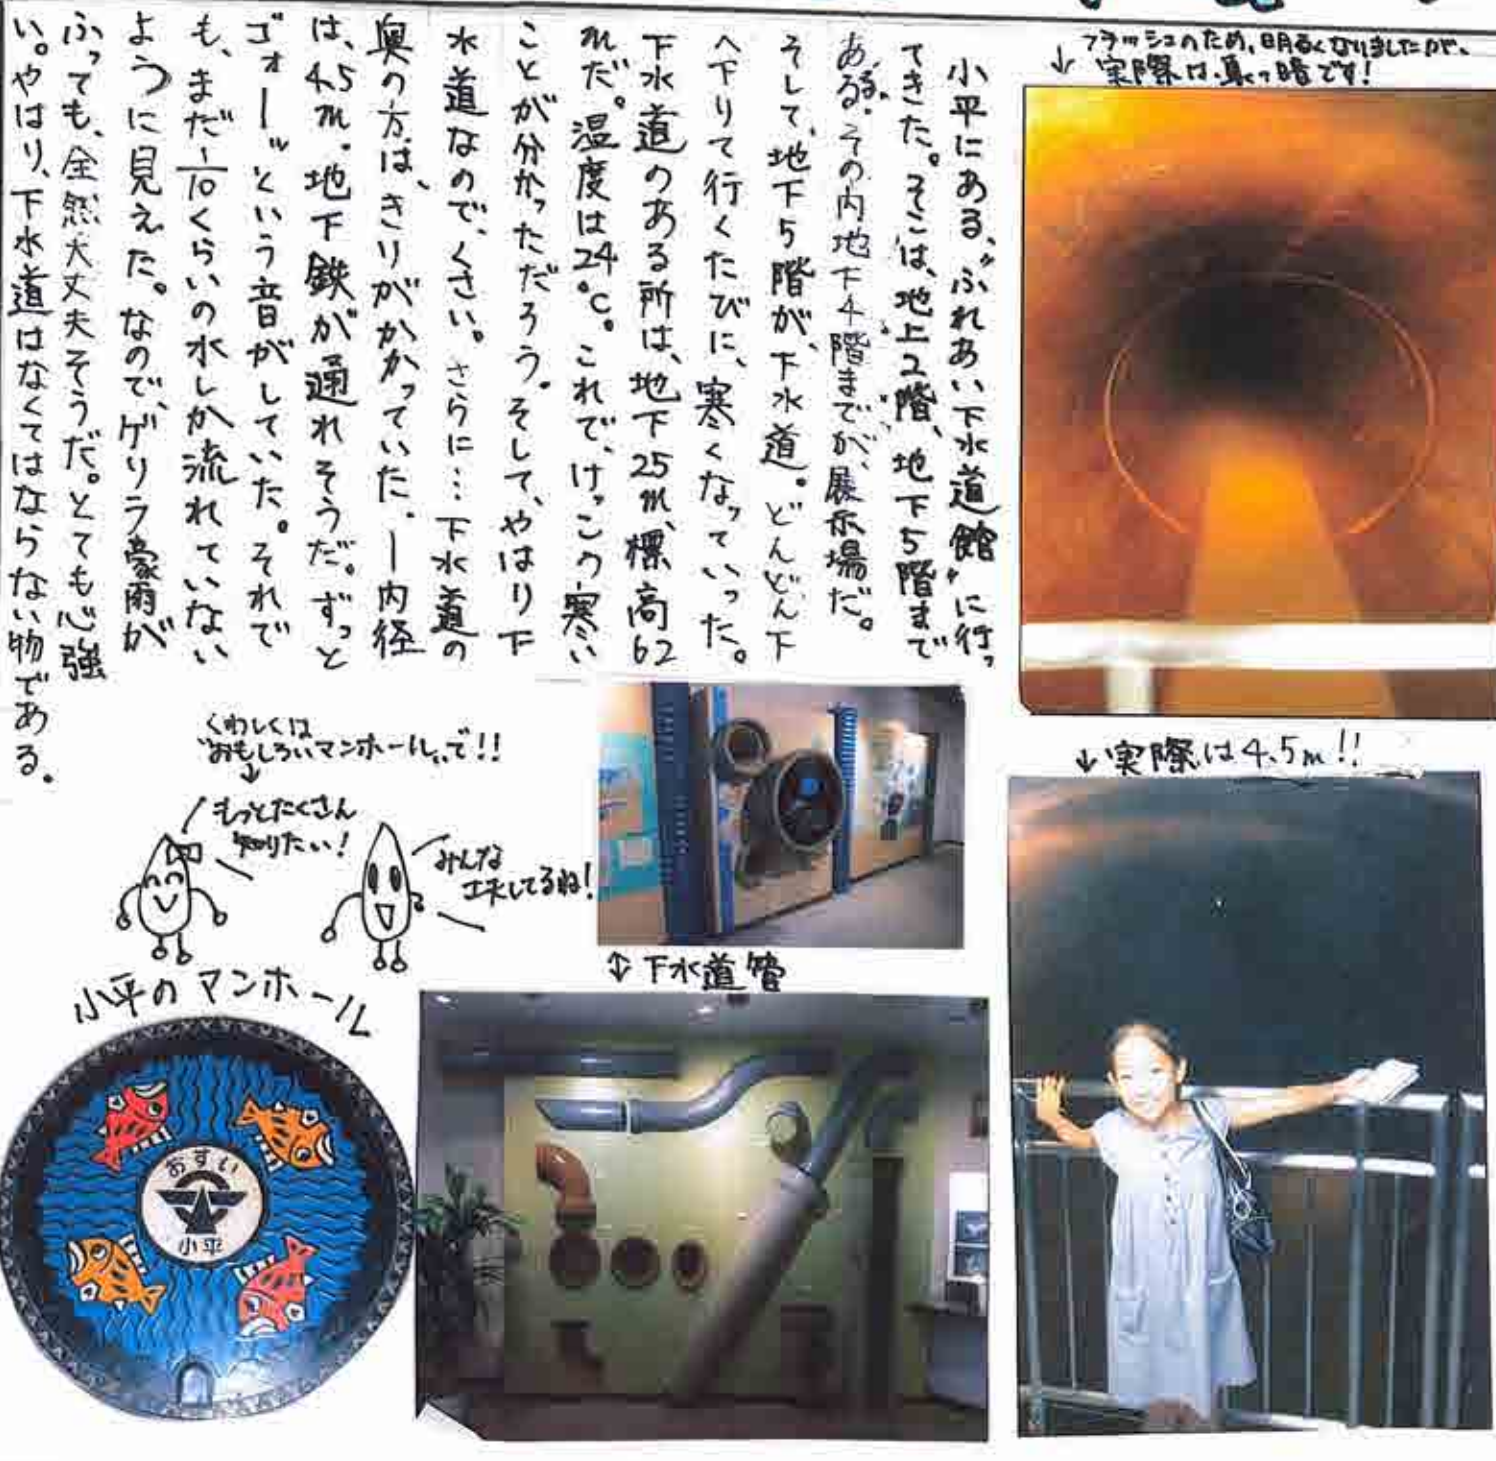 フラッシュのため、明るくなりましたが、
↓ 実際は、真っ暗です!
小平にある、“ふれあい下水道館”に行っ
てきた。そこは、地上2階、地下5階まで
ある。その内地下4階までが、展示場だ。
そして、地下5階が、下水道。どんどん下
へ下りて行くたびに、寒くなっていった。
下水道のある所は、地下25m、標高62
mだ。温度は24℃。これで、けっこう寒い
ことが分かっただろう。そして、やはり下
水道なので、くさい。さらに…下水道の
奥の方は、きりがかかっていた。ー内径
は、4.5m。地下鉄が通れそうだ。ずっと
ゴォー〟という音がしていた。それで
も、まだ1/10くらいの水しか流れていない
ように見えた。なので、ゲリラ豪雨が
ふっても、全然大丈夫そうだ。とても心強
い。やはり、下水道はなくてはならない物である。
↓実際は4.5m!!
くわしくは
“おもしろいマンホール〟で!!
↓
もっとたくさん
知りたい!
みんな
工夫してるね!
⇕下水道管
小平のマンホール
おすい
小平